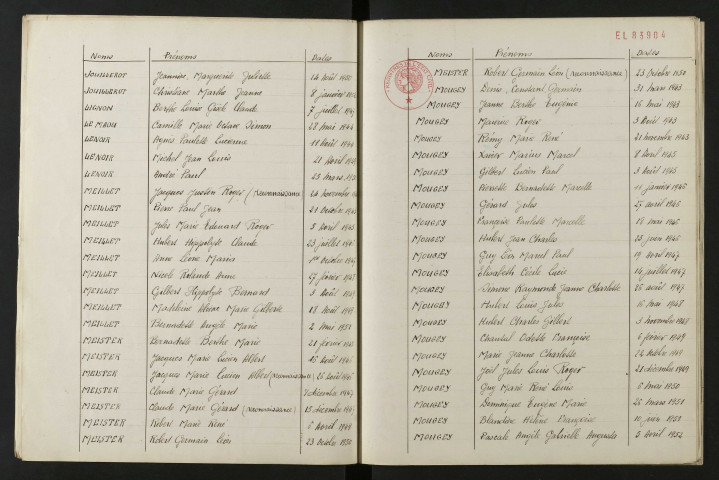 Noms Prénoms Dates
JOUILLEROT Jeannine Marguerite Juliette 14 août
JOUILLEROT Christiane Marthe Jeanne 8 janvier
LIGNON Berthe Louise Claude 7 juillet
LE MAOU Camille Marie Simon 28 mai 1944
LENOIR Agnès Paulette Lucienne 11 août 1944
LENOIR Michel Jean Louis 21 Avril
LENOIR André Paul 23 mars
MEILLET Jacques Justin Roger (reconnaissance) 24 novembre
MEILLET Pierre Paul Jean 21 octobre
MEILLET Jules Marie Edouard Roger 5 Avril
MEILLET Hubert Hippolyte Claude 23 juillet 1946
MEILLET Anne Léone Maria 1er Octobre
MEILLET Nicole Rolande Anne 27 février
MEILLET Gilbert Hippolyte Bernard 3 Août 1947
MEILLET Madeleine Marie Gilberte 18 août 1949
MEILLET Bernadette Angèle Marie 2 mai 1951
MEISTER Bernadette Berthe Marie 21 février
MEISTER Jacques Marie Lucien Albert 26 Août 1946
MEISTER Jacques Marie Lucien Albert (reconnaissance) 26 Août 1946
MEISTER Claude Marie Gérard 3 décembre 1947
MEISTER Claude Marie Gérard (reconnaissance) 13 décembre 1947
MEISTER Robert Marie René 6 Avril 1949
MEISTER Robert Germain Léon 23 Octobre 1950
EL 83904
Noms Prénoms Dates
MEISTER Robert Germain Léon (reconnaissance) 23 Octobre 1950
MOUGEY Denis Constant Germain 31 mars 1943
MOUGEY Jeanne Berthe Eugénie 16 mai 1943
MOUGEY Maurice Roger 3 Août 1943
MOUGEY Rémy Marie René 21 novembre 1943
MOUGEY Xavier Marius Marcel 8 Avril 1945
MOUGEY Gilbert Lucien Paul 3 Août 1945
MOUGEY Pierrette Bernadette Marcelle 11 janvier 1946
MOUGEY Gérard Jules 27 avril 1946
MOUGEY Françoise Paulette Marcelle 18 mai 1946
MOUGEY Hubert Jean Charles 23 juin 1946
MOUGEY Guy Léon Marcel Paul 19 Avril 1947
MOUGEY Elisabeth Cécile Lucie 14 juillet 1947
MOUGEY Simone Raymonde Jeanne Charlotte 26 août 1947
MOUGEY Hubert Louis Jules 16 mai 1948
MOUGEY Hubert Charles Gilbert 3 novembre 1948
MOUGEY Chantal Odette Françoise 6 février 1949
MOUGEY Marie Jeanne Charlotte 24 Octobre 1949
MOUGEY Joël Jules Louis Roger 21 décembre 1949
MOUGEY Guy Marie René Louis 6 mai 1950
MOUGEY Dominique Eugène Marie 26 mars 1951
MOUGEY Blandine Hélène Françoise 10 juin 1951
MOUGEY Pascale Angèle Gabrielle Augusta 5 Avril 1952